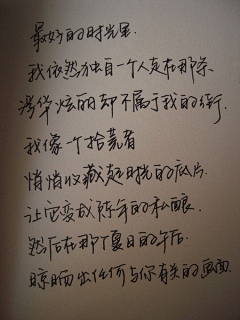 最好的时光里.
我依然独自一个人走在那条
奢华炫丽却不属于我的街.
我像一个拾荒者
悄悄收藏起时光的底片.
让它变成陈年的私酿.
然后在那个夏日的午后.
晾晒出任何与你有关的画面.